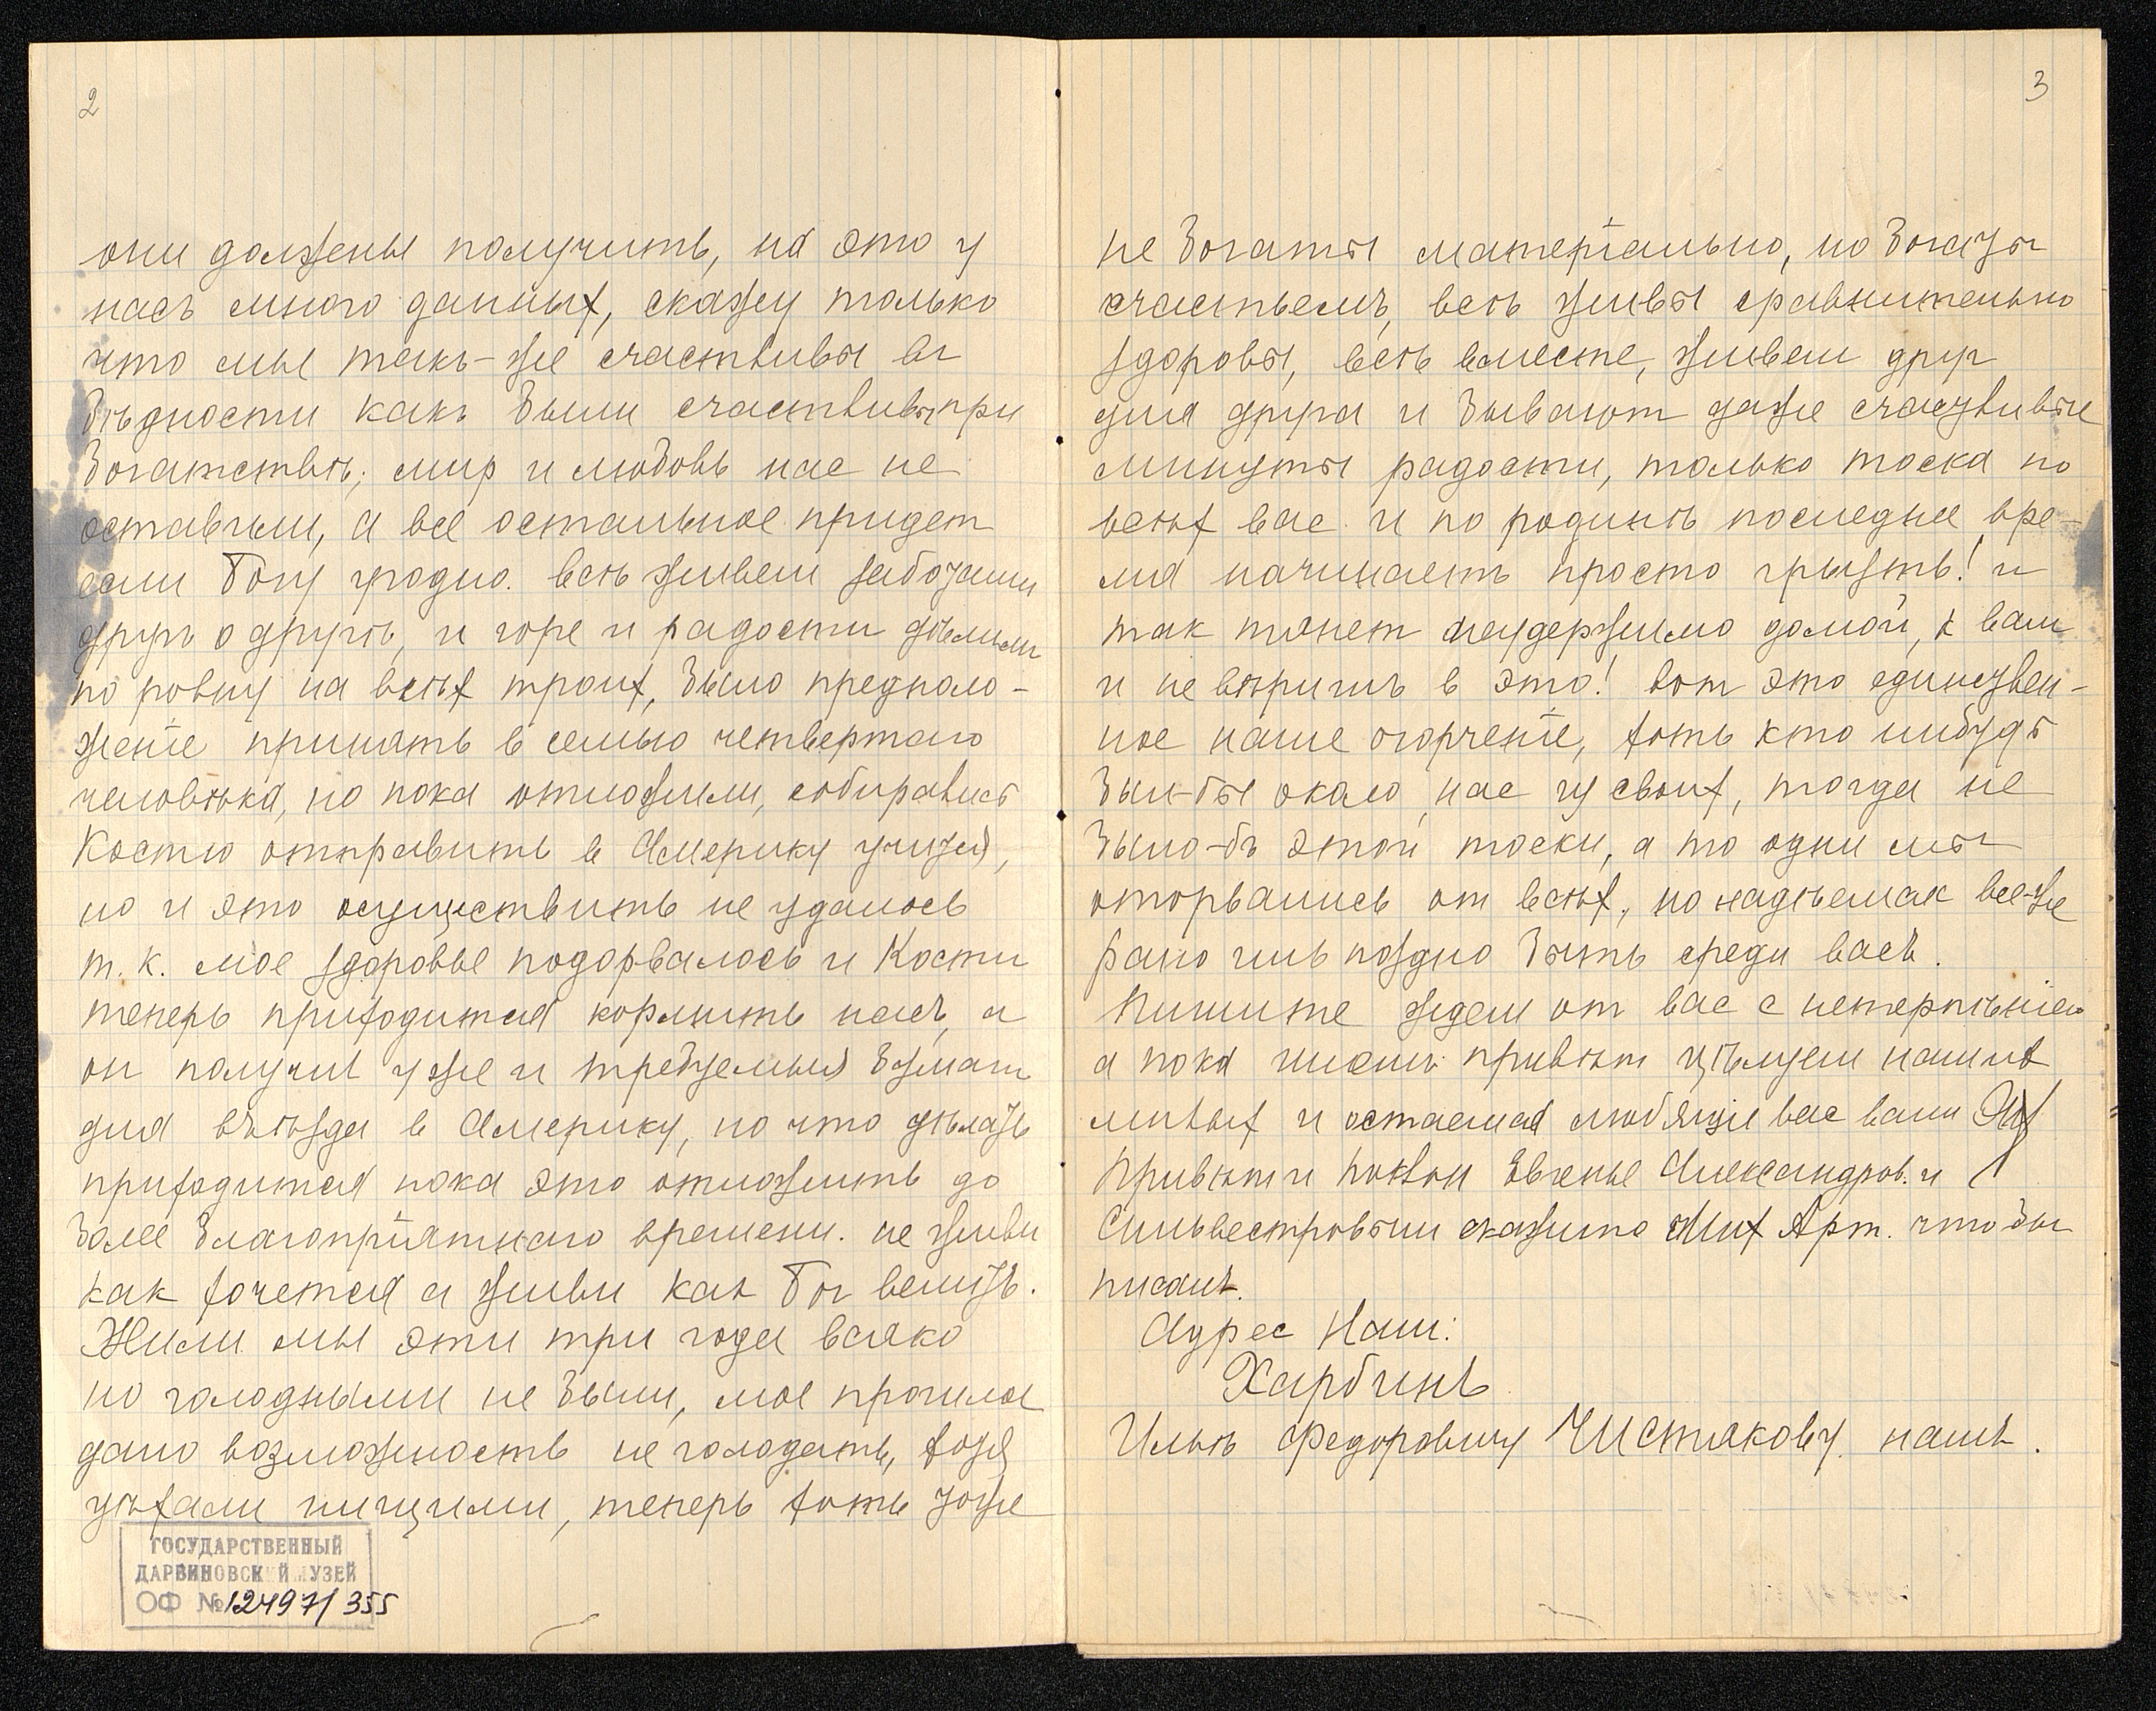 2
они должены получить, на это у
насъ много данных, скажу только
что мы такъ-же счастливы в
бѣдности какъ были счастливы при
богатствѣ; мир и любовь нас не
оставили, а все остальное придет
если Богу угодно. всѣ живем заботами
другъ о другѣ, и горе и радости дѣлим
по ровну на всѣх троих, было предполо-
жение принять в семью четвертаго
человѣка, но пока отложили, собирались
Костю отправить в Америку учится,
но и это осуществить не удалось
т. к. мое здоровье подорвалось и Кости
теперь приходится кормить насъ, а
он получил уже и требуемыя бумаги
для въѣзда в Америку, но что дѣлать
приходится пока это отложить до
более благопрiятнаго времени. не живи
как хочется а живи как Бог велитъ.
Жили мы эти три года всяко
но голодными не были, мое прошлое
дало возможность не голодать, хотя
уѣхали нищими, теперь хоть тоже
ГОСУДАРСТВЕННЫЙ
ДАРВИНОВСКИЙ МУЗЕЙ
ОФ № 12497/355
3
не богаты матерiально, но богаты
счастьемъ, всѣ живы сравнительно
здоровы, всѣ вместе, живем друг
для друга и бывают даже счастливые
минуты радости, только тоска по
всѣх вас и по родинѣ последнее вре-
мя начинаетъ просто грызть! и
так тянет неудержимо домой, к вам
и не вѣришь в это! вот это единствен-
ное наше огорченiе, хоть кто нибудь
был-бы около нас из своих, тогда не
было-бъ этой тоски, а то одни мы
оторвались от всѣх, но надѣемся все-же
рано иль поздно быть среди васъ.
Пишите ждем от вас с нетерпѣнiем
а пока шлем привѣт цѣлуем наших
милых и остаемся любящiе вас ваши
Привѣт и поклон Евгенье Александров. и
Сильвестровым скажите Мих Арт. чтобы
писалъ.
Адрес Наш:
Харбинъ
Ильѣ Федоровичу Чистякову. намъ.